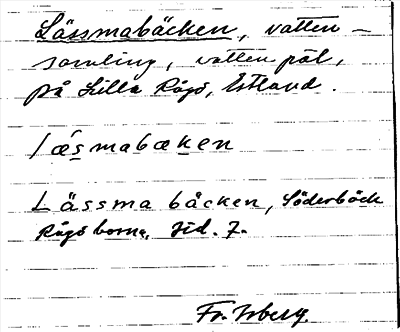 Lässmabäcken, vatten-
samling, vattenpöl,
på Lilla Rågö, Estland.
læsmabæken
Lässmabäcken, Söderbäck
Rågöborna, sid. 7.
Fr. Isberg